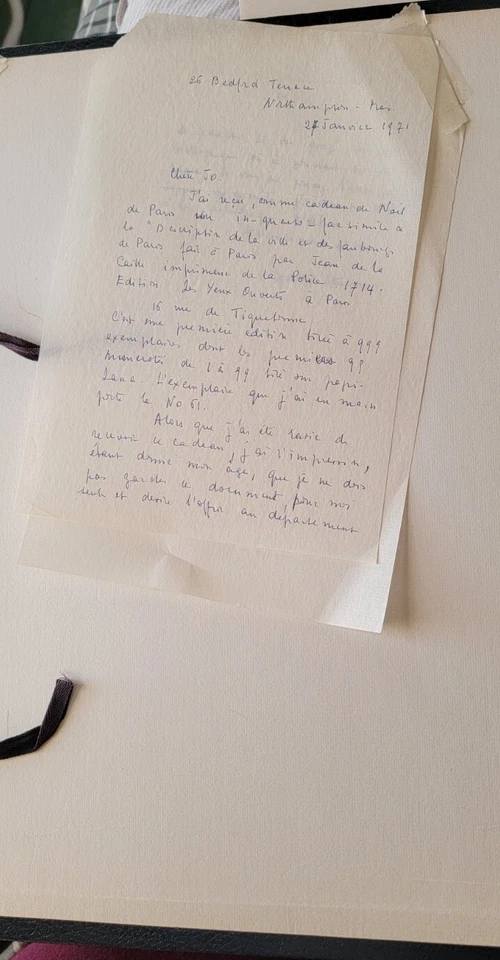 26 Bedford Terrace
Northampton - Mas.
27 Janvier 1971
Chère Jo.
J'ai reçu, comme cadeau de Noël
de Paris un in-quarto - fac similé a
la "Description de la ville et des faubourgs
de Paris fait à Paris par Jean de la
Caille imprimeur de la Police 1714.
Edition Les Yeux Ouverts à Paris
16 rue de Tiquetonne
C'est une première édition tirée à 999
exemplaires dont les premiers 99
numérotés de 1 à 99 tiré sur papier
Lana. L'exemplaire que j'ai en main
porte le No 61.
Alors que j'ai été ravie de
recevoir ce cadeau, j'ai l'impression,
étant donné mon age, que je ne dois
pas garder ce document, pour moi
seule et désire l'offrir au département